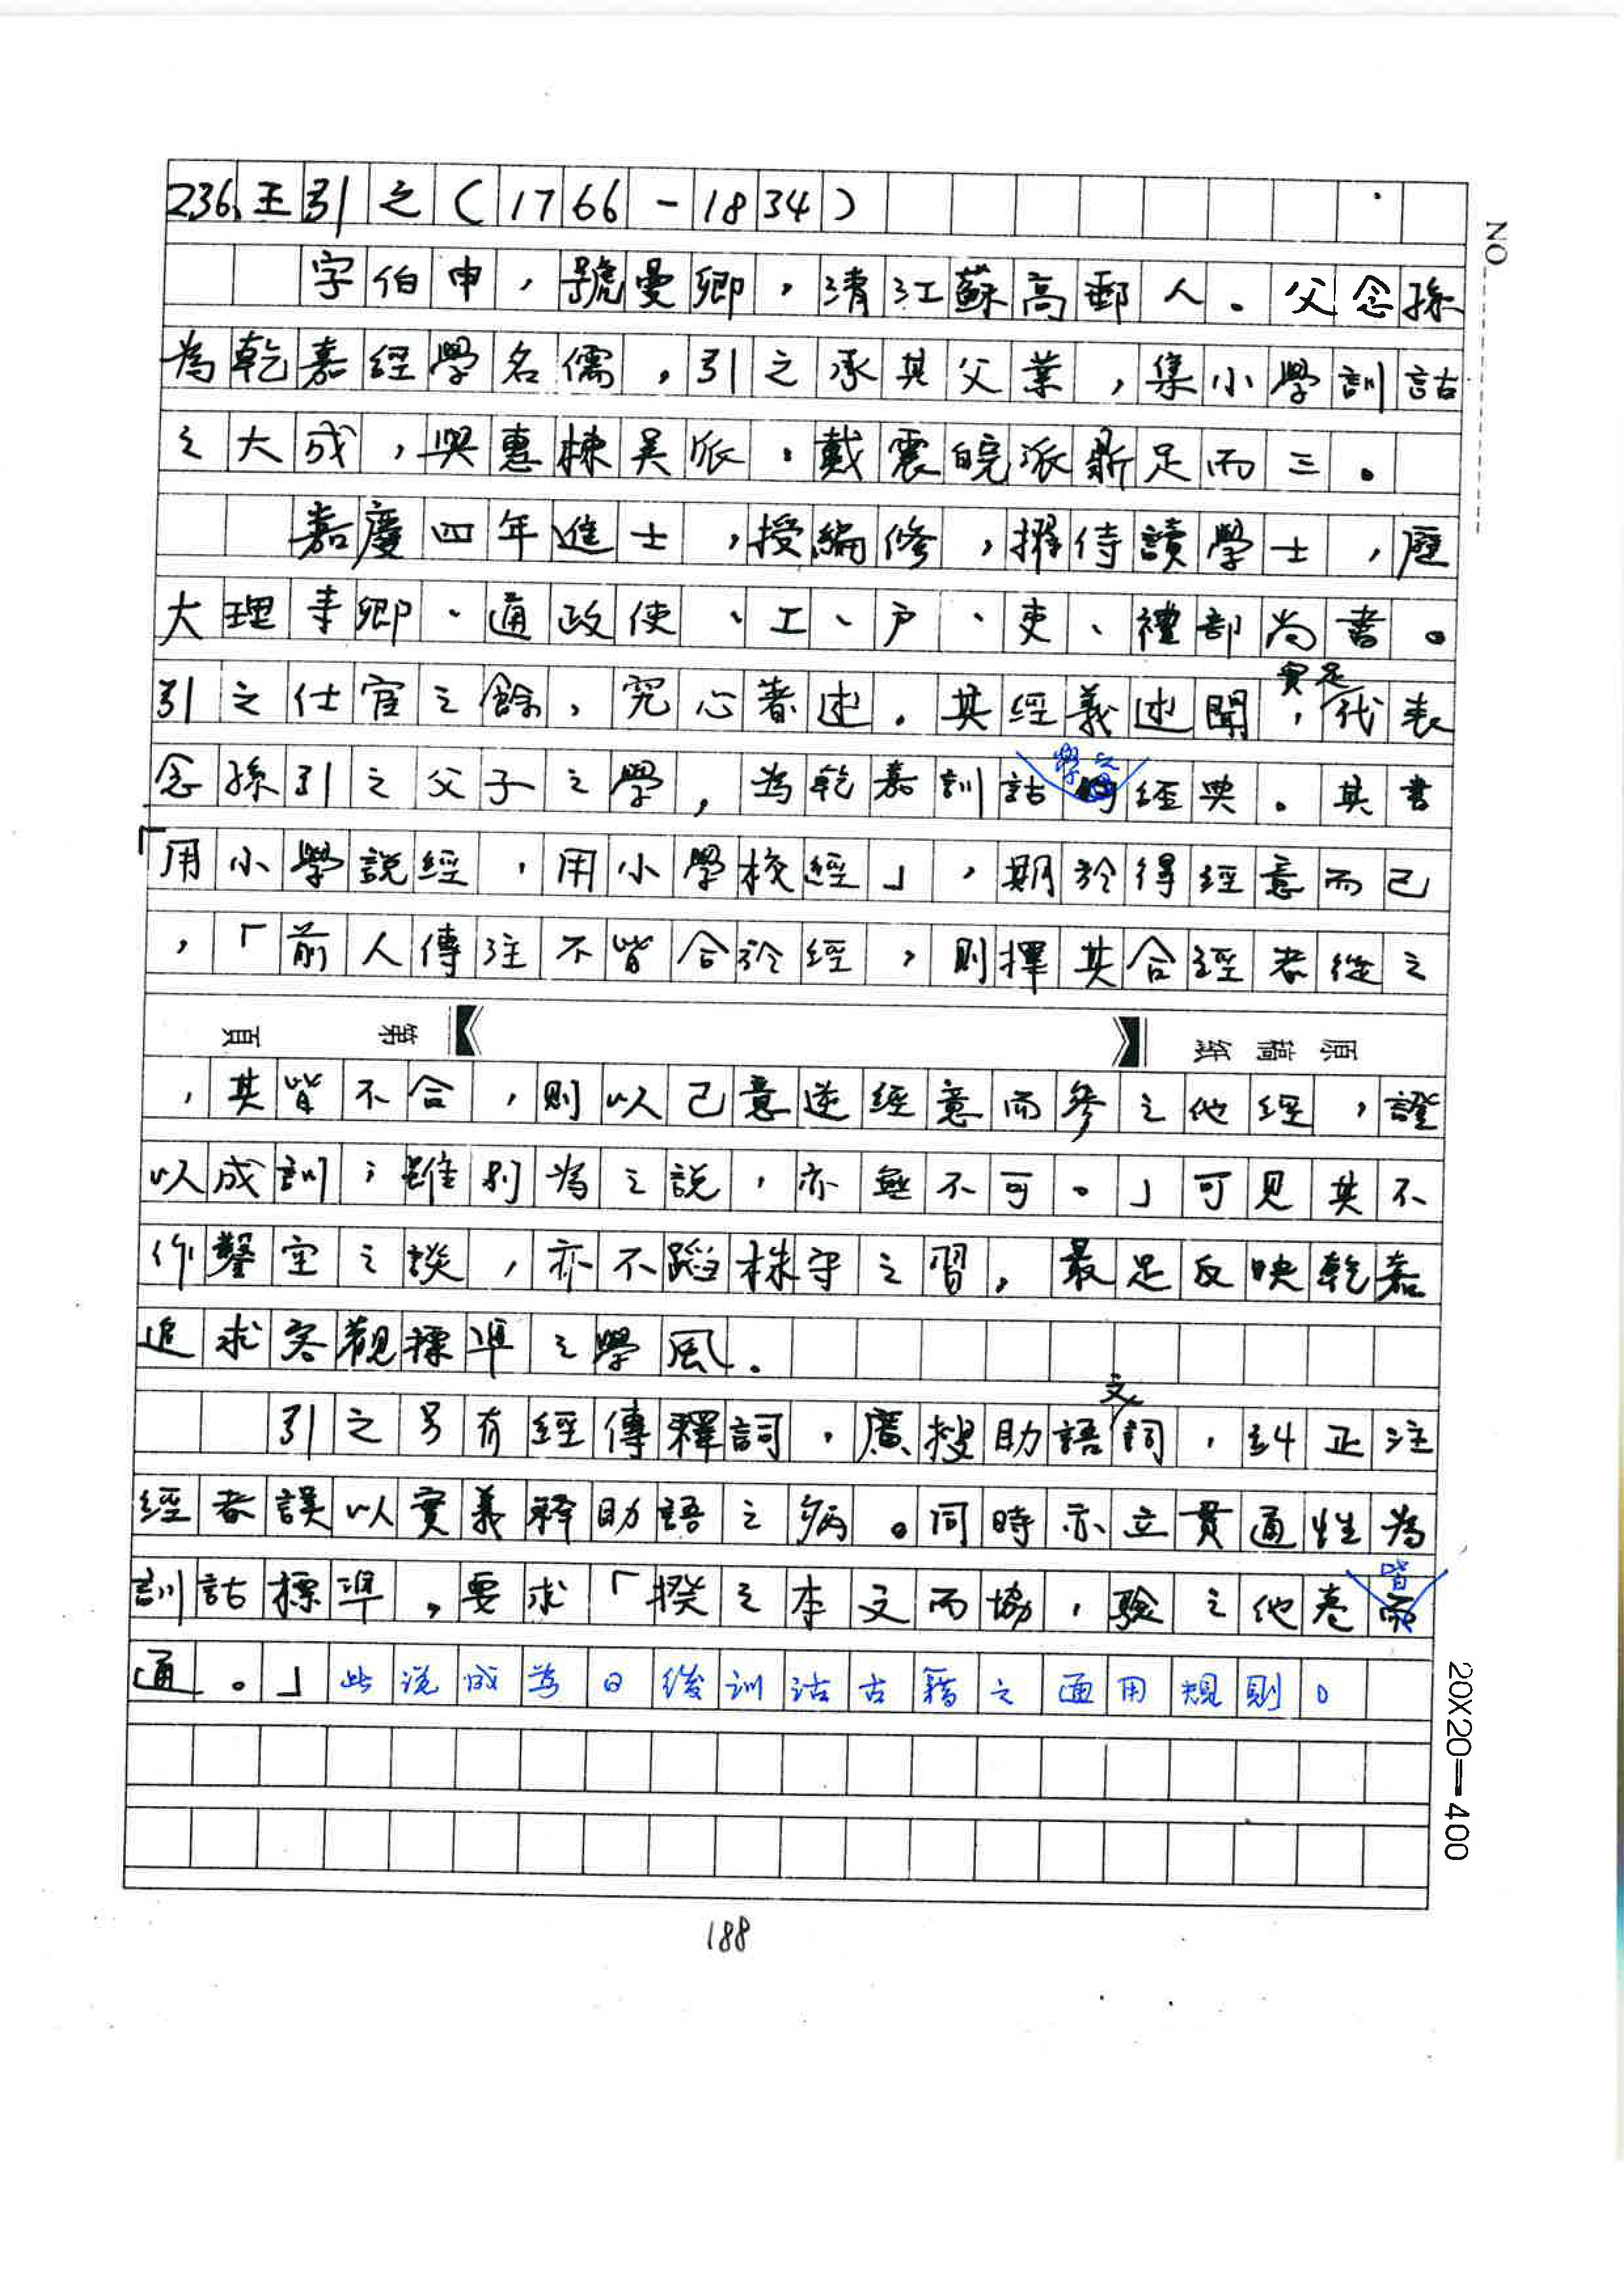 236、王引之(1766-1834)
字伯申,號曼卿,清江蘇高郵人。父念孫
為乾嘉經學名儒,引之承其父業,集小學訓詁
之大成,與惠棟吳派、戴震皖派鼎足而三。
嘉慶四年進士,授編修,擢侍讀學士,歷
大理寺卿、通政使、工、戶、吏、禮部尚書。
引之仕宦之餘,究心著述。其經義述聞,實足代表
念孫引之父子之學,為乾嘉訓詁學之經典。其書
「用小學說經,用小學校經」,期於得經意而已
,「前人傳注不皆合於經,則擇其合經者從之
原稿紙 第 頁
,其皆不合,則以己意逆經意而參之他經,證
以成訓;雖別為之說,亦無不可。」可見其不
作鑿空之談,亦不蹈株守之習,最足反映乾嘉
追求客觀標準之學風。
引之另有經傳釋詞,廣搜助語文詞,糾正注
經者誤以實義釋助語之病。同時亦立貫通性為
訓詁標準,要求「揆之本文而協,驗之他卷皆
通。」此說成為日後訓詁古籍之通用規則。
188
NO
20X20=400